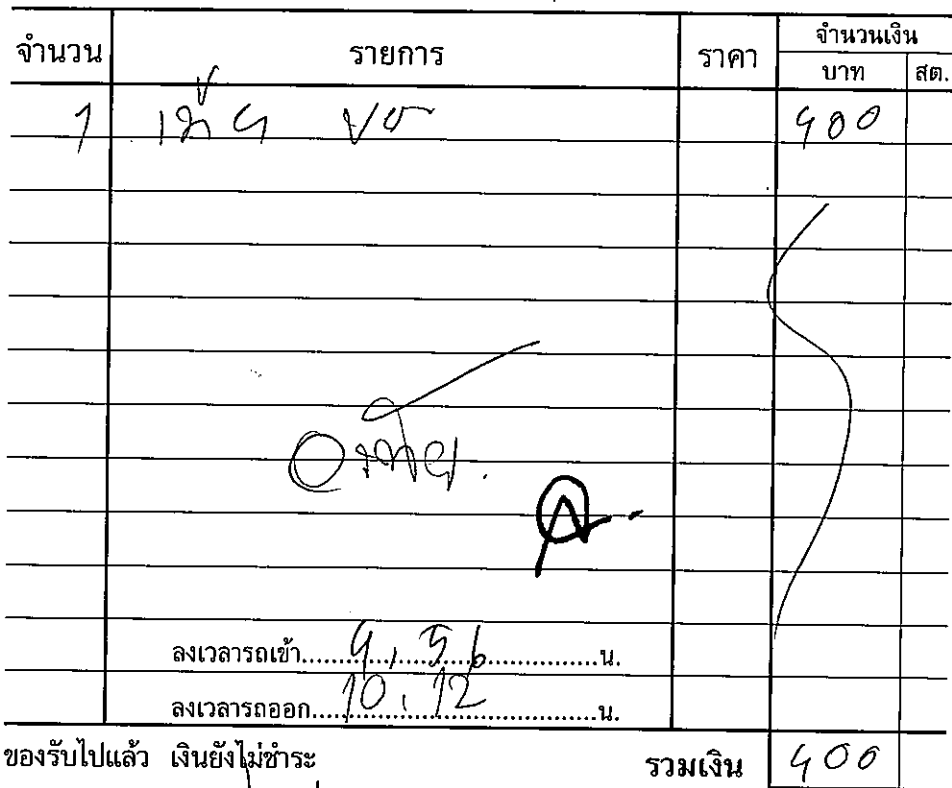 จำนวน รายการ ราคา จำนวนเงิน
บาท สต.
1 400
ลงเวลารถเข้า....9.56....น.
ลงเวลารถออก....10.12....น.
ของรับไปแล้ว เงินยังไม่ชำระ รวมเงิน 400